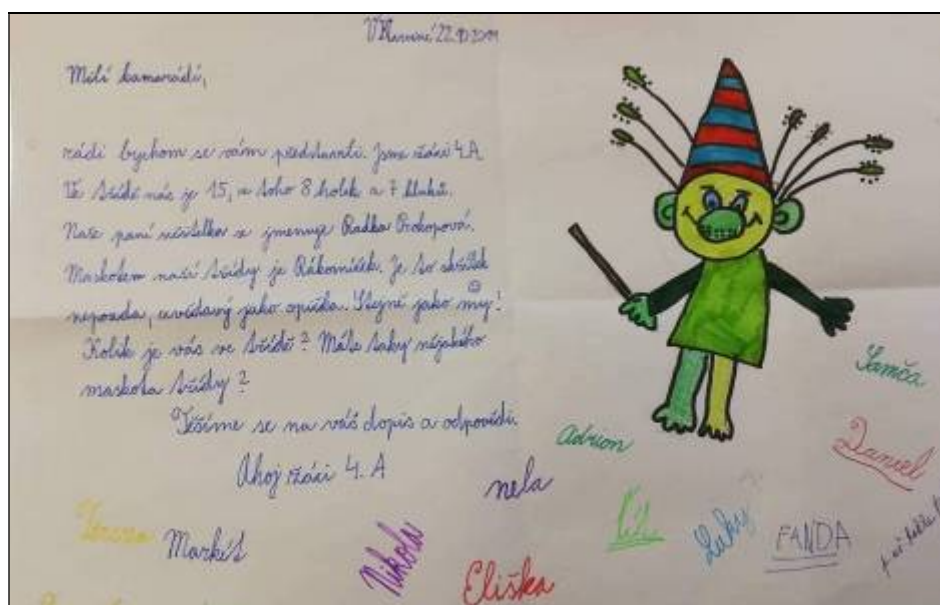 V Karviné 22.10.2019
Milí kamarádi,
rádi bychom se vám představili. Jsme žáci 4.A
Ve třídě nás je 15, z toho 8 holek a 7 kluků.
Naše paní učitelka se jmenuje Radka Prokopová.
Maskotem naší třídy je Rákosníček. Je to skřítek
neposeda, zvědavý jako opička. Stejně jako my!
Kolik je vás ve třídě? Máte taky nějakého
maskota třídy?
Těšíme se na váš dopis a odpovědi.
Ahoj žáci 4. A
Samča
Adrion
Daniel
nela
Markét
Nikola
Eliška
Luky
FANDA